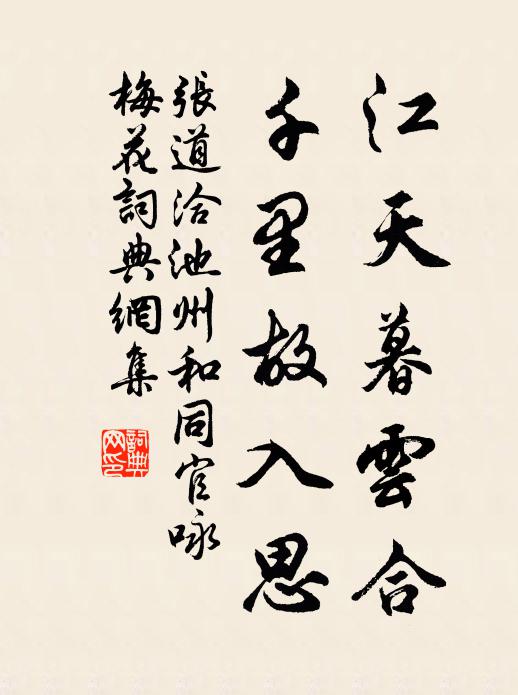 江天暮雲合
千里故入思
張道洽池州和同官咏
梅花詞典網集
詞典
网印